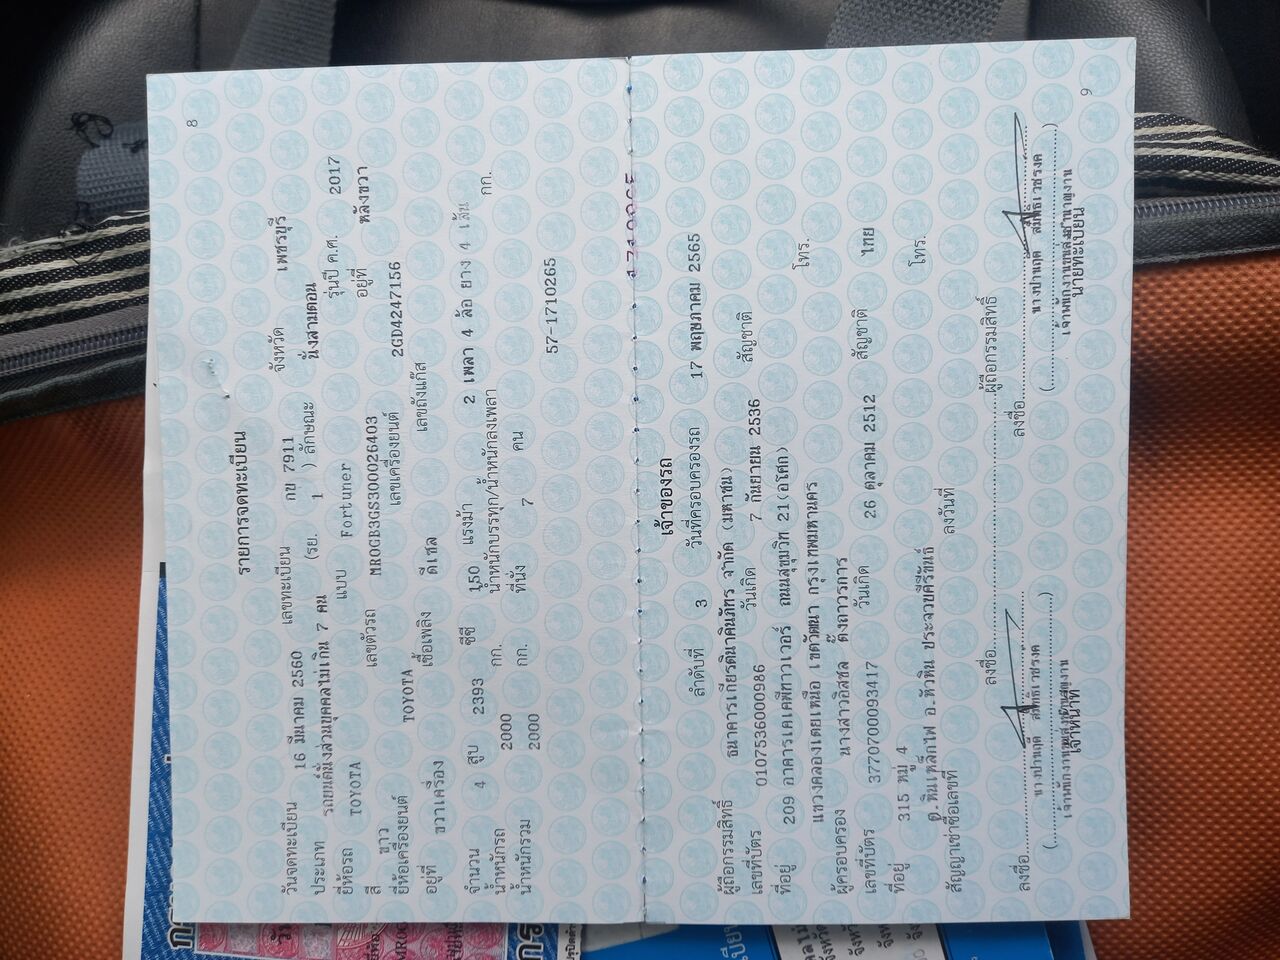 8
รายการจดทะเบียน
วันจดทะเบียน 16 มีนาคม 2560 เลขทะเบียน กข 7911 จังหวัด เพชรบุรี
ประเภท รถยนต์นั่งส่วนบุคคลไม่เกิน 7 คน (รย. 1 ) ลักษณะ นั่งสามตอน
ยี่ห้อรถ TOYOTA แบบ Fortuner รุ่นปี ค.ศ. 2017
สี ขาว เลขตัวรถ MR0GB3GS300026403 อยู่ที่ หลังขวา
ยี่ห้อเครื่องยนต์ TOYOTA เลขเครื่องยนต์ 2GD4247156
อยู่ที่ ขวาเครื่อง เชื้อเพลิง ดีเซล เลขถังแก๊ส
จำนวน 4 สูบ 2393 ซีซี 150 แรงม้า 2 เพลา 4 ล้อ ยาง 4 เส้น
น้ำหนักรถ 2000 กก. น้ำหนักบรรทุก/น้ำหนักลงเพลา กก.
น้ำหนักรวม 2000 กก. ที่นั่ง 7 คน
57-1710265
เจ้าของรถ
ลำดับที่ 3 วันที่ครอบครองรถ 17 พฤษภาคม 2565
ผู้ถือกรรมสิทธิ์ ธนาคารเกียรตินาคินภัทร จำกัด (มหาชน)
เลขที่บัตร 0107536000986 วันเกิด 7 กันยายน 2536 สัญชาติ
ที่อยู่ 209 อาคารเคเคพีทาวเวอร์ ถนนสุขุมวิท 21(อโศก)
แขวงคลองเตยเหนือ เขตวัฒนา กรุงเทพมหานคร โทร.
ผู้ครอบครอง นางสาวอิสซิล ตั๊งถาวรการ
เลขที่บัตร 3770700093417 วันเกิด 26 ตุลาคม 2512 สัญชาติ ไทย
ที่อยู่ 315 หมู่ 4
ต.หินเหล็กไฟ อ.หัวหิน ประจวบคีรีขันธ์ โทร.
สัญญาเช่าซื้อเลขที่ ลงวันที่
ลงชื่อ ผู้ถือกรรมสิทธิ์
ลงชื่อ ลงชื่อ
เจ้าหน้าที่ นายทะเบียน
9